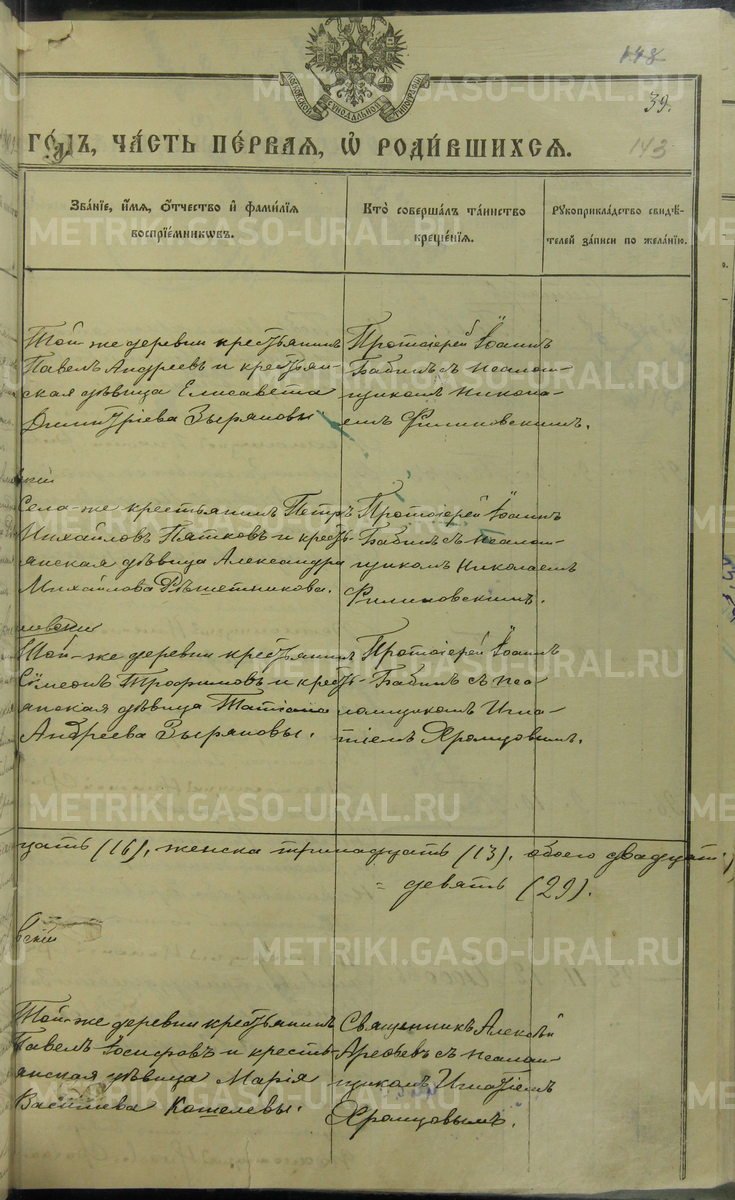 148
39.
143
МОСКОВСКОЙ СУНОДАЛЬНОЙ ТИПОГРАФІИ
ГО́ДЪ, ЧА́СТЬ ПЕ́РВАЯ, Ѡ҆ РОДИ́ВШИХСѦ.
Зва́нїе, и҆́мѧ, ѻ҆́тчество и҆ фамѝлїѧ
воспрїе́мникѡвъ.
Кто̀ соверша́лъ та́инство
креще́нїѧ.
Рꙋкоприкла́дство свидѣ́-
телей за́писи по жела́нїю.
Той же деревни крестьянинъ
Павелъ Андреевъ и крестьян-
ская дѣвица Елисавета
Димитріева Зыряновы
Протоіерей Іоаннъ
Бабинъ съ псалом-
щикомъ Никола-
емъ Филиповскимъ.
вскій
Села-же крестьянинъ Петръ
Михайловъ Пятковъ и кресть-
янская дѣвица Александра
Михайлова Рѣшетникова.
Протоіерей Іоаннъ
Бабинъ съ псалом-
щикомъ Николаемъ
Филиповскимъ.
Той-же деревни крестьянинъ
Сѵмеонъ Трофимовъ и кресть-
янская дѣвица Татіана
Андреева Зыряновы.
Протоіерей Іоаннъ
Бабинъ съ пса-
ломщикомъ Игна-
тіемъ Хромцовымъ.
цать (16), женска тринадцать (13), обоего двадцать
= девять (29).
вскій
Той-же деревни крестьянинъ
Павелъ Іосифовъ и кресть-
янская дѣвица Марія
Васильева Кошелевы.
Священникъ Алексѣй
Арефьевъ съ псалом-
щикомъ Игнатіемъ
Хромцовымъ.
METRIKI.GASO-URAL.RU